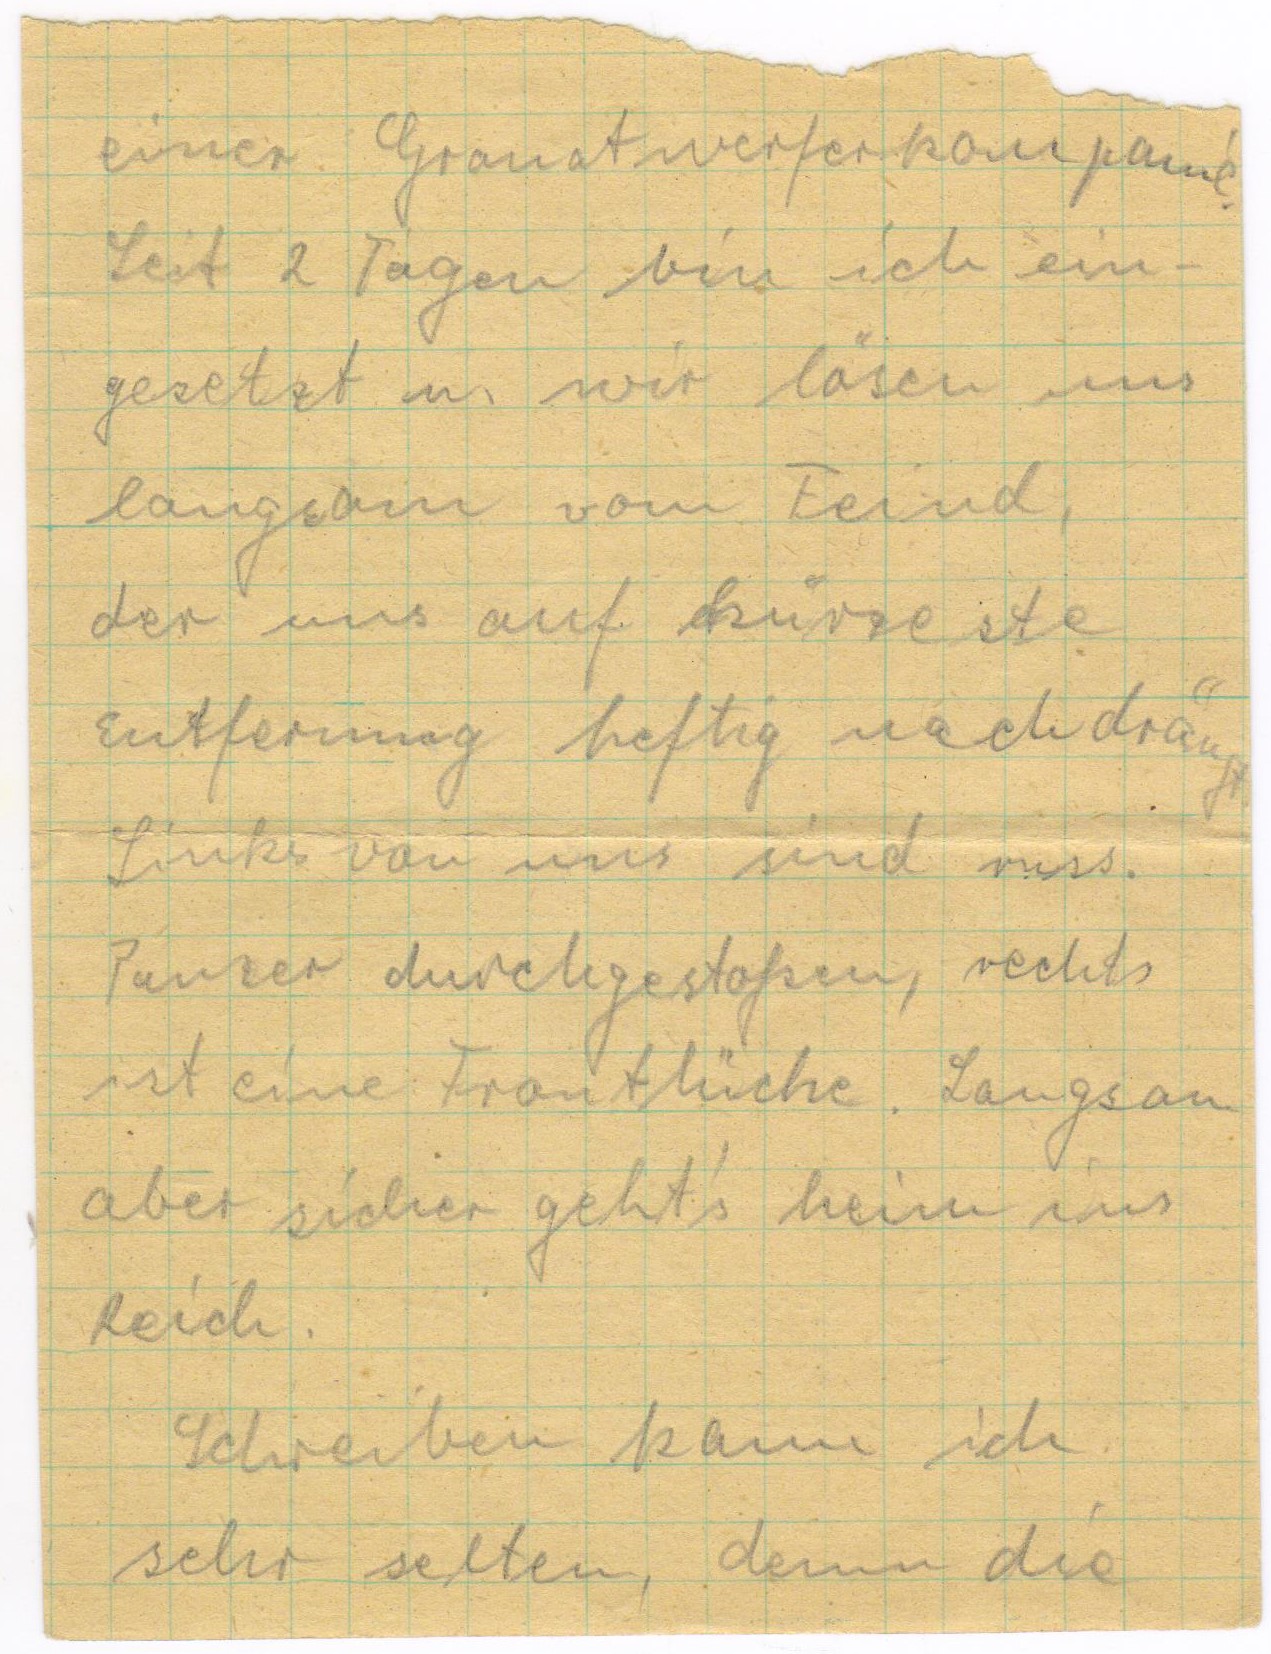 einer Granatwerferkompanie.
Seit 2 Tagen bin ich ein-
gesetzt u. wir lösen uns
langsam vom Feind,
der uns auf kürzeste
Entfernung heftig nachdrängt.
Links von uns sind russ.
Panzer durchgestoßen, rechts
ist eine Frontlücke. Langsam
aber sicher geht's heim ins
Reich.
Schreiben kann ich
sehr selten, denn die